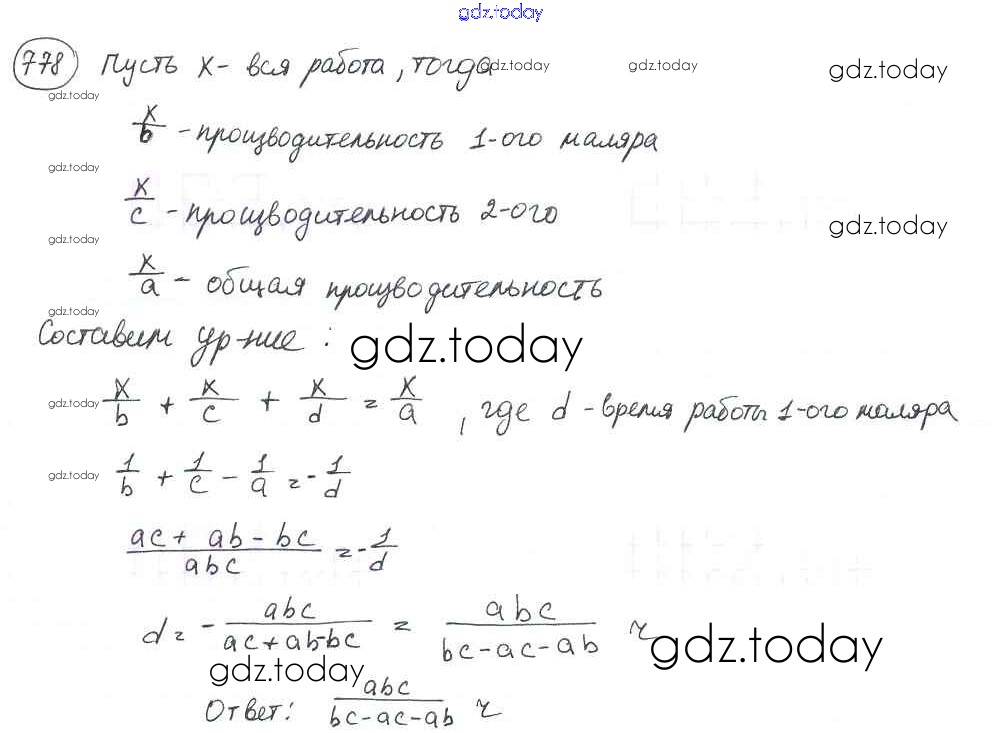 gdz.today
778 Пусть x - вся работа, тогда gdz.today gdz.today gdz.today
gdz.today
x/b - производительность 1-ого маляра
gdz.today
x/c - производительность 2-ого gdz.today
gdz.today
x/a - общая производительность
gdz.today
Составим ур-ние: gdz.today
gdz.today x/b + x/c + x/d = x/a, где d - время работы 1-ого маляра
gdz.today 1/b + 1/c - 1/a = - 1/d
(ac + ab - bc)/abc = - 1/d
d = - abc/(ac + ab - bc) = abc/(bc - ac - ab) ч gdz.today
gdz.today
Ответ: abc/(bc - ac - ab) ч